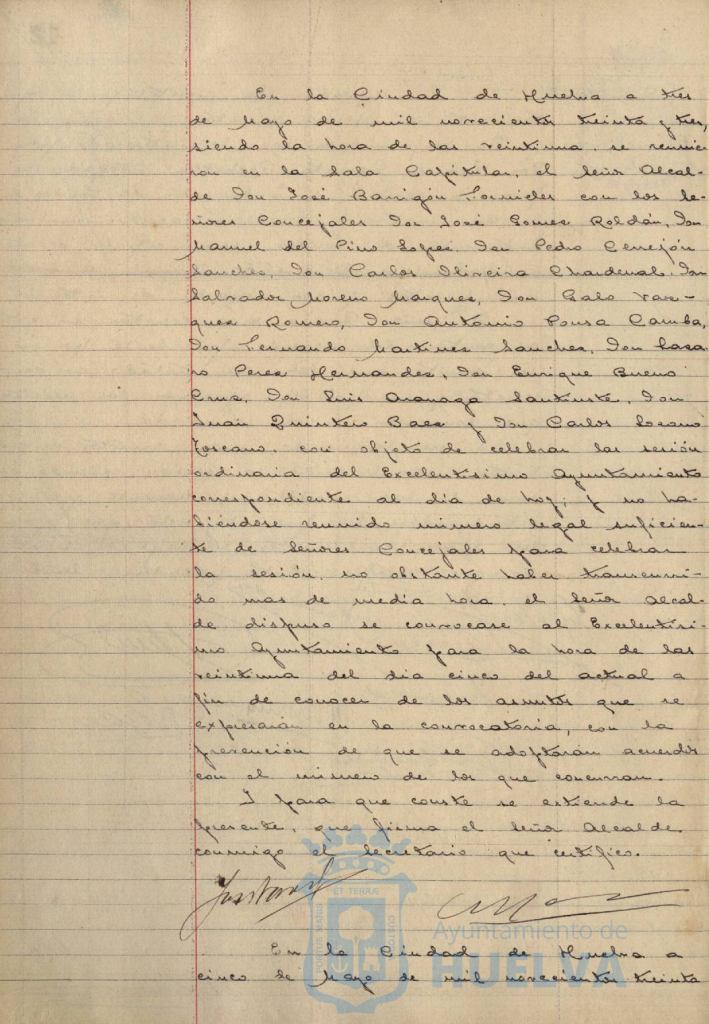 En la Ciudad de Huelva a tres
de Mayo de mil novecientos treinta y tres,
siendo la hora de las veintiuna, se reunie-
ron en la Sala Capitular, el Señor Alcal-
de Don José Barrigón Fornieles con los Se-
ñores Concejales Don José Gomez Roldán, Don
Manuel del Pino Lopez, Don Pedro Cerrejón
Sanchez, Don Carlos Oliveira Chardenal, Don
Salvador Moreno Marquez, Don Galo Vaz-
quez Romero, Don Antonio Pousa Camba,
Don Fernando Martinez Sanchez, Don Lasa-
ro Perez Hernandez, Don Enrique Bueno
Cruz, Don Luis Aranaga Santuste, Don
Juan Quintero Baez y Don Carlos Lozano
Toscano, con objeto de celebrar la sesión
ordinaria del Excelentisimo Ayuntamiento
correspondiente al dia de hoy; y no ha-
biéndose reunido número legal suficien-
te de Señores Concejales para celebrar
la sesión, no obstante haber transcurri-
do mas de media hora, el Señor Alcal-
de dispuso se convocase al Excelentisi-
mo Ayuntamiento para la hora de las
veintiuna del dia cinco del actual a
fin de conocer de los asuntos que se
expresarán en la convocatoria, con la
prevención de que se adoptarán acuerdos
con el número de los que concurran.
Y para que conste se extiende la
presente, que firma el Señor Alcalde
conmigo el Secretario que certifico.
ET TERRÆ
Ayuntamiento de
HUELVA
En la Ciudad de Huelva a
cinco de Mayo de mil novecientos treinta